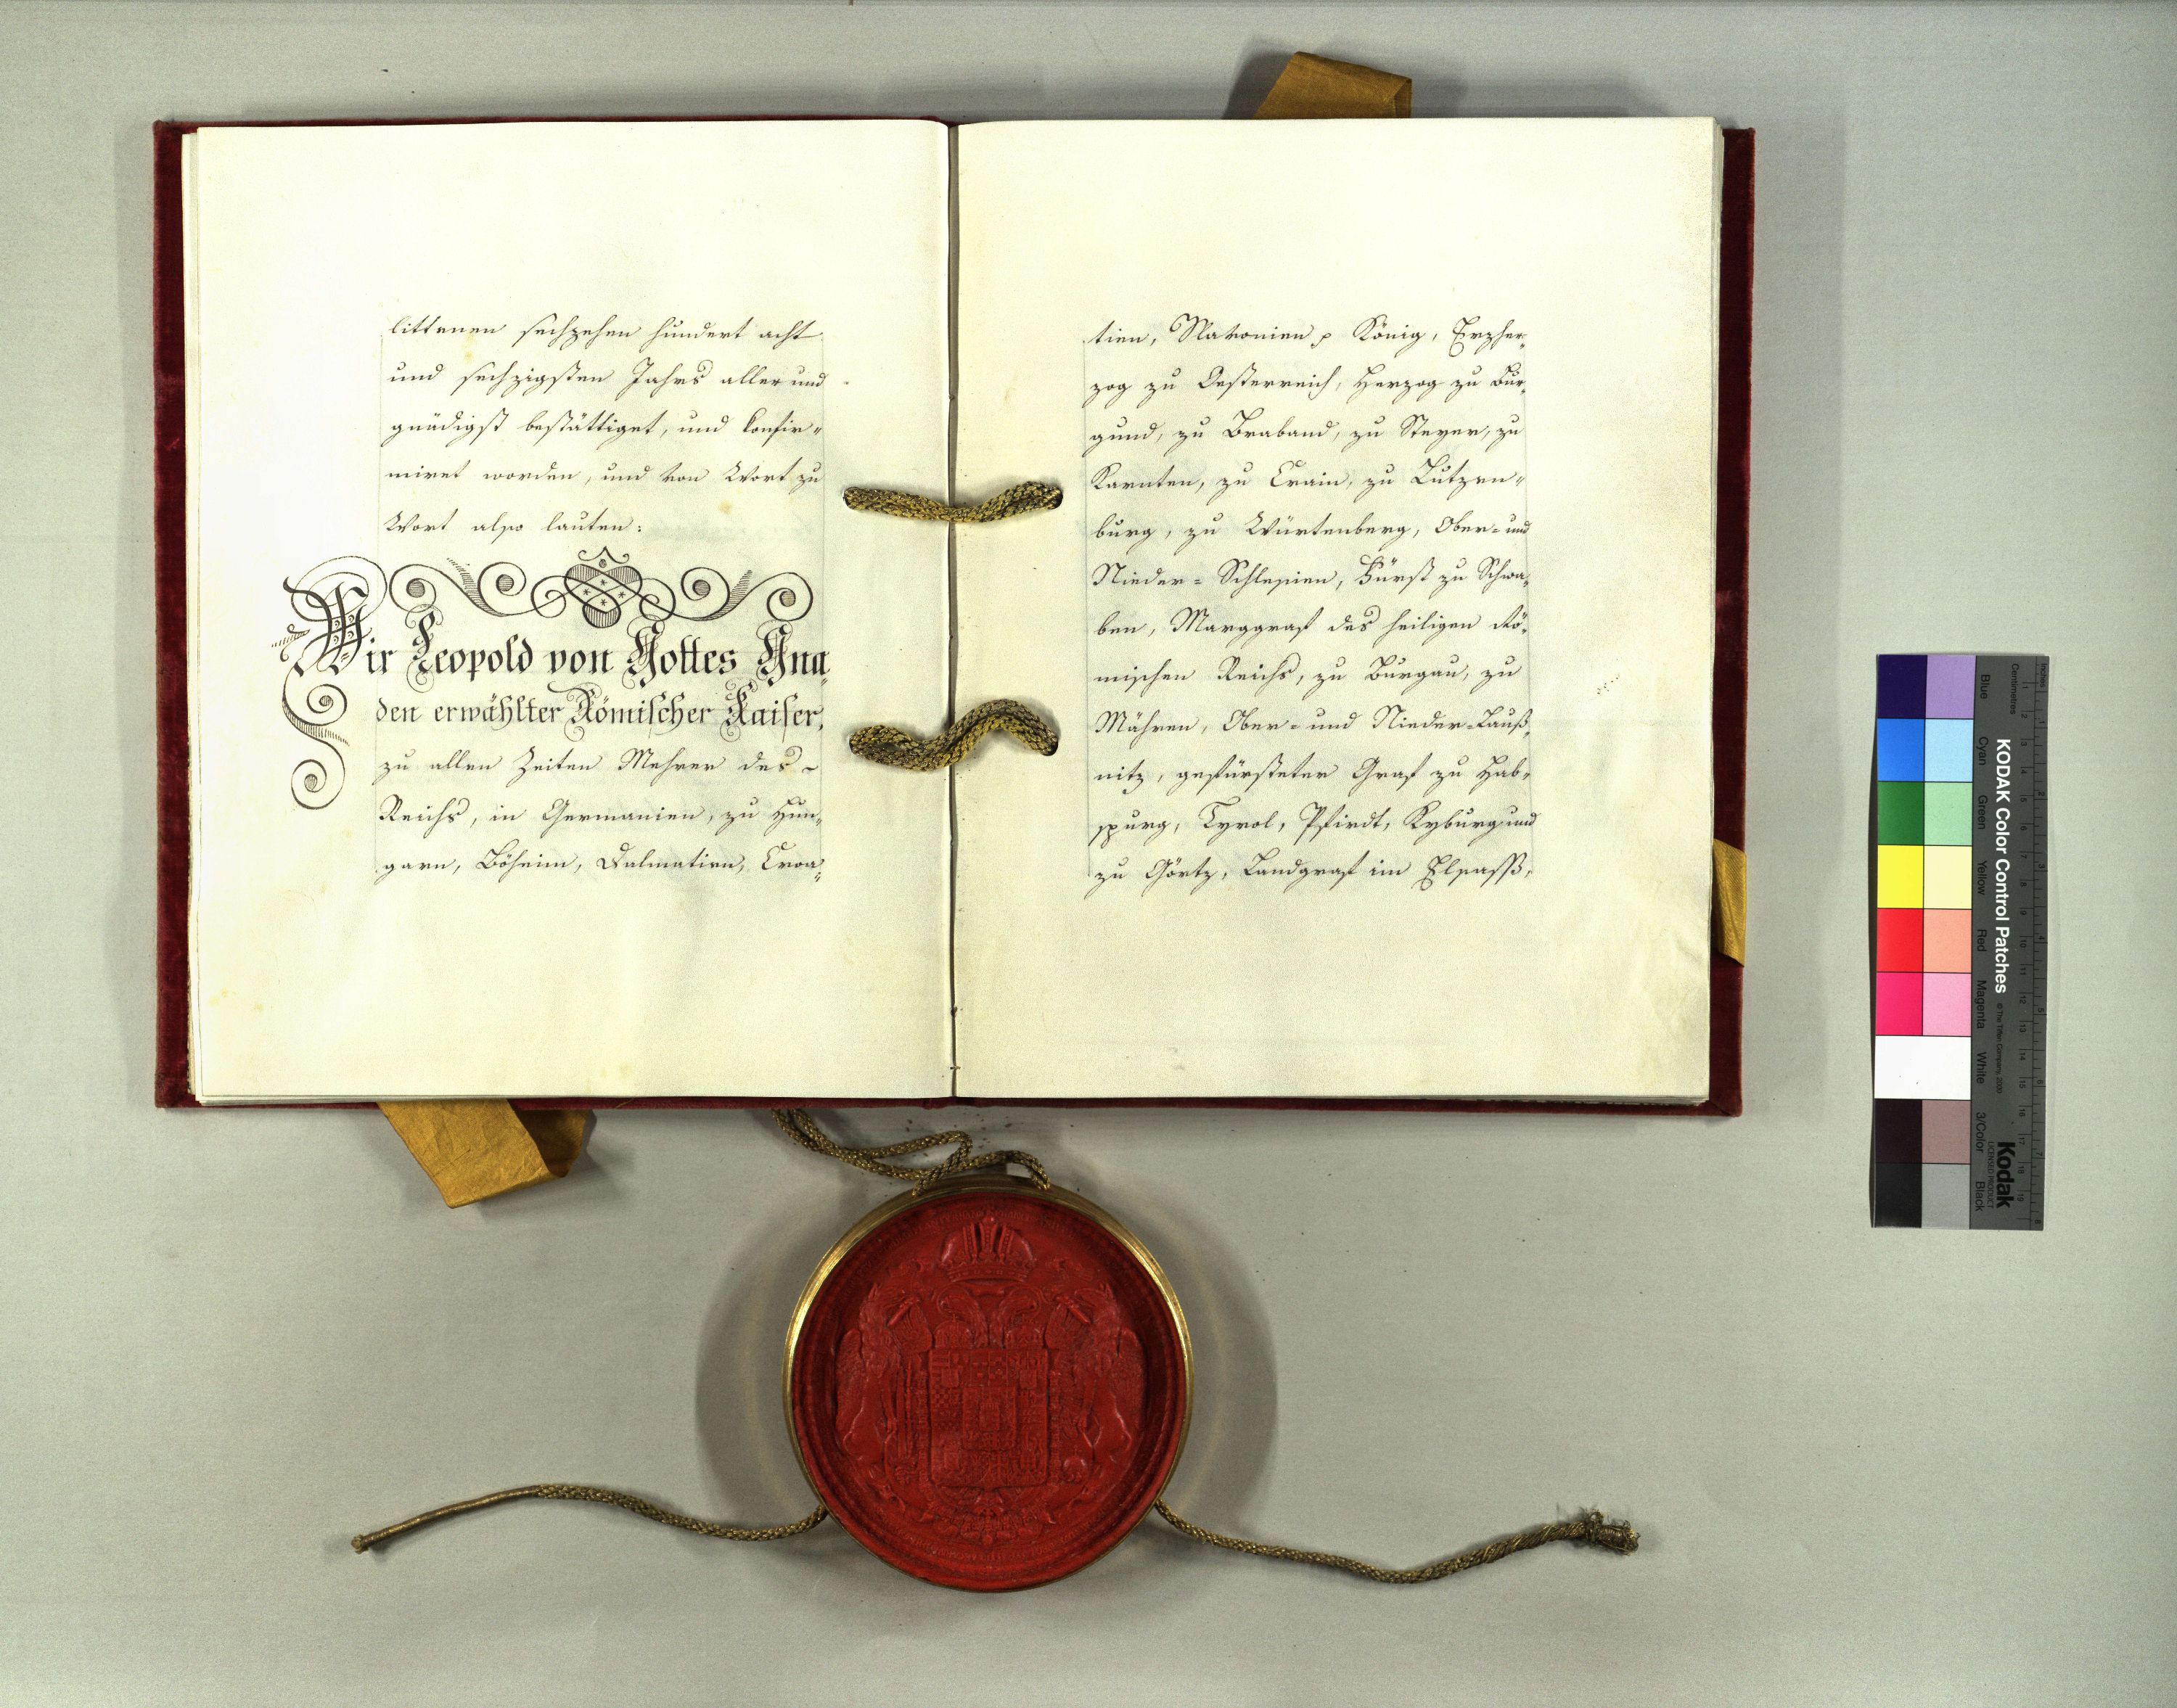 littenen sechzehen hundert acht
und sechzigsten Jahrs aller und
gnädigst bestättiget, und Confir=
miret worden, und von Wort zu
Wort also lauten:
Wir Leopold von Gottes Gna„
den erwählter Römischer Kaiser,
zu allen Zeiten Mehrer des
Reichs, in Germanien, zu Hun„
garn, Böheim, Dalmatien, Croa„
tien, Slavonien König, Erzher„
zog zu Oesterreich, Herzog zu Bur„
gund, zu Braband, zu Steyer, zu
Karnten, zu Crain, zu Lutzen„
burg, zu Würtenberg, Ober= und
Nieder= Schlesien, Fürst zu Schwa„
ben, Marggraf des heiligen Rö„
mischen Reichs, zu Burgau, zu
Mähren, Ober= und Nieder=Lauß„
nitz, gefürsteter Graf zu Hab„
spurg, Tyrol, Pfirdt, Kyburg und
zu Görtz, Landgraf im Elsaß,
KODAK Color Control Patches
Kodak
LICENSED PRODUCT
© The Tiffen Company, 2000
Inches
Centimetres
Blue Cyan Green Yellow Red Magenta White 3/Color Black